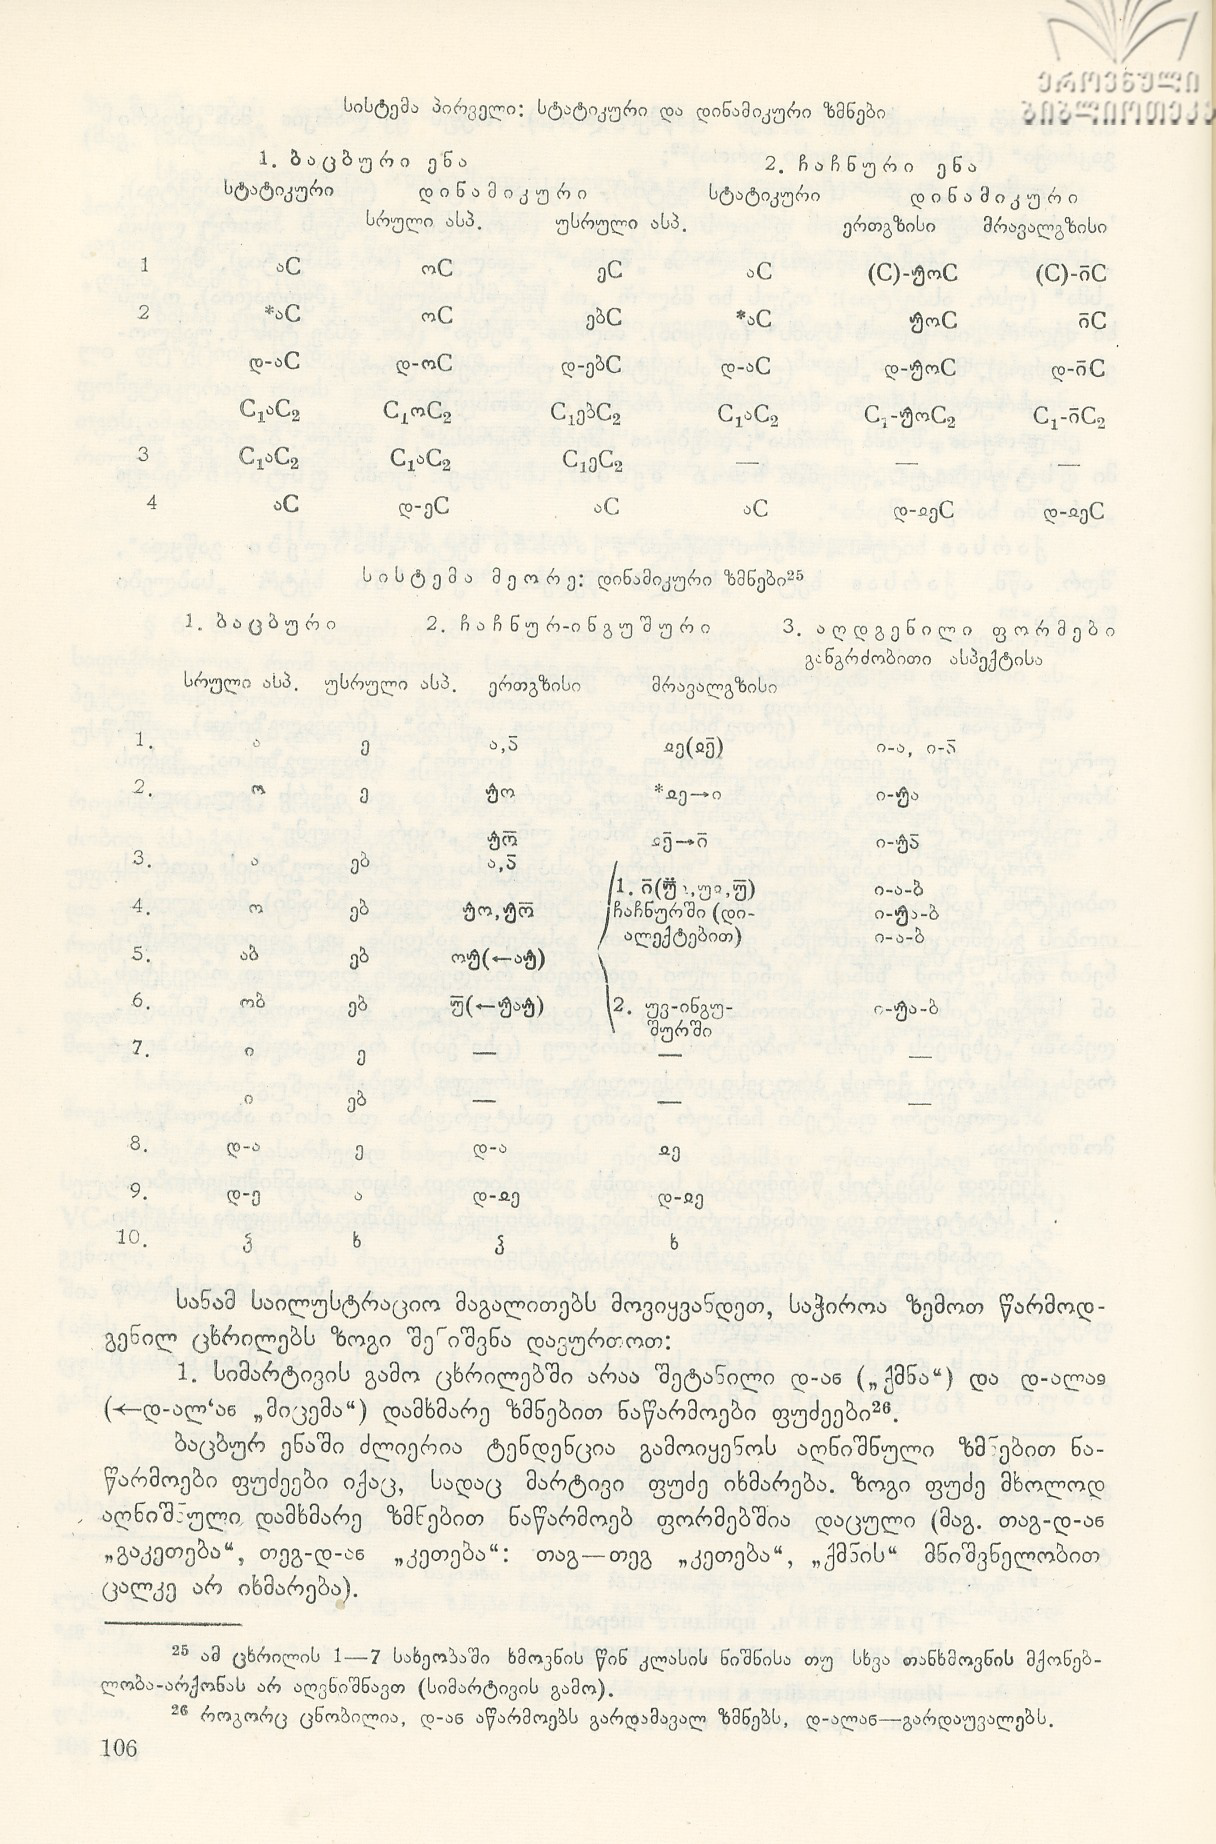 სისტემა პირველი: სტატიკური და დინამიკური ზმნები
1. ბაცბური ენა 2. ჩაჩნური ენა
სტატიკური დინამიკური სტატიკური დინამიკური
სრული ასპ. უსრული ასპ. ერთგზისი მრავალგზისი
1 აC ოC ეC აC (C)-უ̂ოC (C)-ი̄C
2 *აC ოC ებC *აC უ̂ოC ი̄C
დ-აC დ-ოC დ-ებC დ-აC დ-უ̂ოC დ-ი̄C
C₁აC₂ C₁ოC₂ C₁ებC₂ C₁აC₂ C₁-უ̂ოC₂ C₁-ი̄C₂
3 C₁აC₂ C₁აC₂ C₁ეC₂ — — —
4 აC დ-ეC აC აC დ-ჲეC დ-ჲეC
სისტემა მეორე: დინამიკური ზმნები²⁵
1. ბაცბური 2. ჩაჩნურ-ინგუშური 3. აღდგენილი ფორმები
განგრძობითი ასპექტისა
სრული ასპ. უსრული ასპ. ერთგზისი მრავალგზისი
1. ა ე ა,ა̄ ჲე(ჲე̄) ი-ა, ი-ა̄
2. ო ე უ̂ო *ჲე→ი ი-უ̂ა
უ̂ო̄ ჲე̄→ი̄ ი-უ̂ა̄
3. ა ებ ა,ა̄
1. ი̄( ,უ̄) ი-ა-ბ
4. ო ებ უ̂ო,უ̂ო̄ ჩაჩნურში (დი- ი-უ̂ა-ბ
ალექტებით) ი-ა-ბ
5. აბ ებ ოუ̂(←აუ̂)
6. ობ ებ უ̄(←უ̂აუ̂) 2. უვ-ინგუ- ი-უ̂ა-ბ
შურში
7. ი ე — — —
ი ებ — — —
8. დ-ა ე დ-ა ჲე
9. დ-ე ა დ-ჲე დ-ჲე
10. ჴ ხ ჴ ხ
სანამ საილუსტრაციო მაგალითებს მოვიყვანდეთ, საჭიროა ზემოთ წარმოდ-
გენილ ცხრილებს ზოგი შენიშვნა დავურთოთ:
1. სიმარტივის გამო ცხრილებში არაა შეტანილი დ-ან („ქმნა“) და დ-ალაჲ
(←დ-ალ‘ან „მიცემა“) დამხმარე ზმნებით ნაწარმოები ფუძეები²⁶.
ბაცბურ ენაში ძლიერია ტენდენცია გამოიყენოს აღნიშნული ზმნებით ნა-
წარმოები ფუძეები იქაც, სადაც მარტივი ფუძე იხმარება. ზოგი ფუძე მხოლოდ
აღნიშნული დამხმარე ზმნებით ნაწარმოებ ფორმებშია დაცული (მაგ. თაგ-დ-ან
„გაკეთება“, თეგ-დ-ან „კეთება“: თაგ—თეგ „კეთება“, „ქმნის“ მნიშვნელობით
ცალკე არ იხმარება).
²⁵ ამ ცხრილის 1—7 სახეობაში ხმოვნის წინ კლასის ნიშნისა თუ სხვა თანხმოვნის მქონებ-
ლობა-არქონას არ აღვნიშნავთ (სიმარტივის გამო).
²⁶ როგორც ცნობილია, დ-ან აწარმოებს გარდამავალ ზმნებს, დ-ალან—გარდაუვალებს.
106